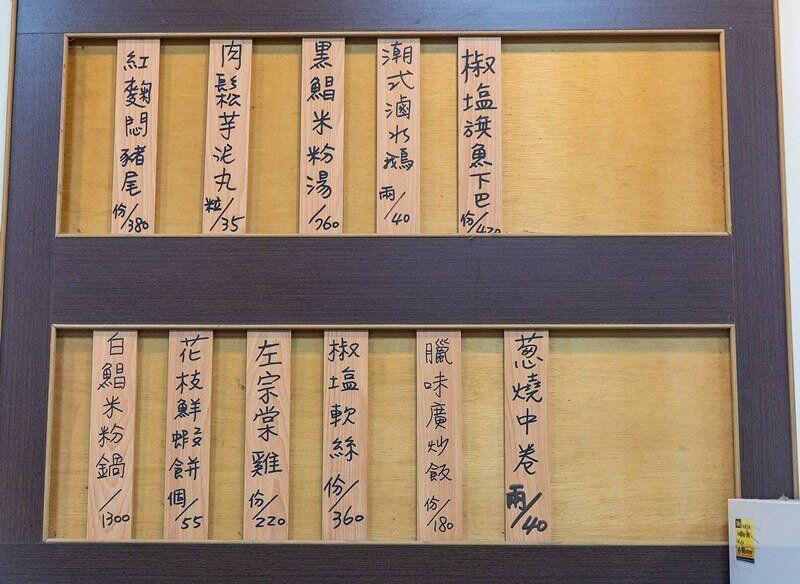 紅麴悶豬尾 份/380
肉鬆芋泥丸 粒/35
黑鯧米粉湯/760
潮式滷水鵝 兩/40
椒塩旗魚下巴 份/420
白鯧米粉鍋/1300
花枝鮮蝦餅 個/55
左宗棠雞 份/220
椒塩軟絲 份/360
臘味廣炒飯 份/180
葱燒中卷 兩/40